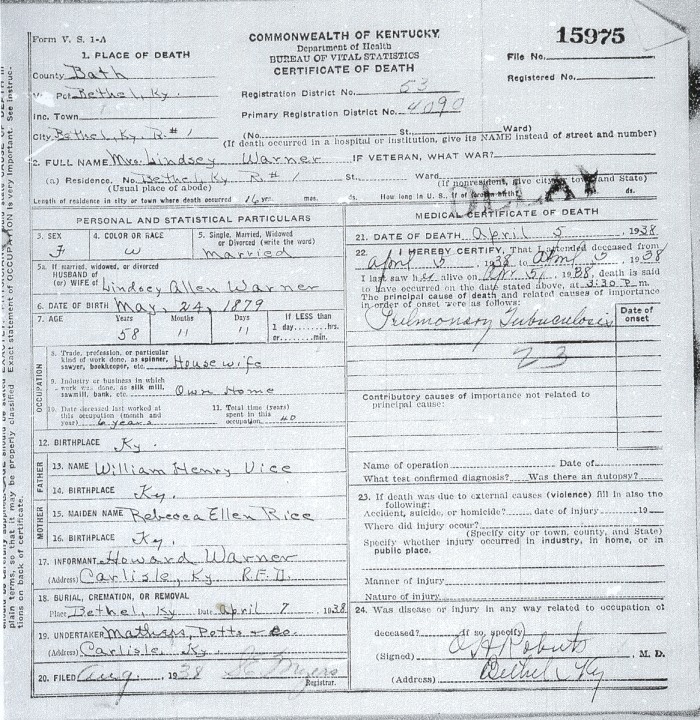 Form V. S. 1-A
COMMONWEALTH OF KENTUCKY
Department of Health
BUREAU OF VITAL STATISTICS
CERTIFICATE OF DEATH
15975
File No.
Registered No.
1. PLACE OF DEATH
County Bath
Pct Bethel, Ky.
Inc. Town
City Bethel, Ky R. # 1
Registration District No. 53
Primary Registration District No. 4090
(No. St. Ward)
(If death occurred in a hospital or institution, give its NAME instead of street and number)
2. FULL NAME Mrs. Lindsey Warner IF VETERAN, WHAT WAR?
(a) Residence. No. Bethel, Ky R. # 1 St., Ward.
(Usual place of abode) (If nonresident, give city or town and State)
Length of residence in city or town where death occurred 16 yrs. mos. ds. How long in U. S., if of foreign birth? ds.
DELAY
PERSONAL AND STATISTICAL PARTICULARS
3. SEX F
4. COLOR OR RACE W
5. Single, Married, Widowed or Divorced (write the word) Married
5a. If married, widowed, or divorced
HUSBAND of
(or) WIFE of Lindsey Allen Warner
6. DATE OF BIRTH May, 24, 1879
7. AGE Years Months Days If LESS than
58 11 11 1 day, hrs.
or min.
OCCUPATION
8. Trade, profession, or particular
kind of work done, as spinner,
sawyer, bookkeeper, etc. House wife
9. Industry or business in which
work was done, as silk mill,
sawmill, bank, etc. Own Home
10. Date deceased last worked at
this occupation (month and
year) 6 years
11. Total time (years)
spent in this
occupation 40
12. BIRTHPLACE Ky.
FATHER
13. NAME William Henry Vice
14. BIRTHPLACE Ky.
MOTHER
15. MAIDEN NAME Rebecca Ellen Rice
16. BIRTHPLACE Ky.
17. INFORMANT Howard Warner
(Address) Carlisle, Ky R.F.D.
18. BURIAL, CREMATION, OR REMOVAL
Place Bethel, Ky Date April 7, 1938
19. UNDERTAKER Mathers, Potts & Co.
(Address) Carlisle, Ky.
20. FILED Aug, 1938 Myers
Registrar.
MEDICAL CERTIFICATE OF DEATH
21. DATE OF DEATH April 5, 1938
22. I HEREBY CERTIFY, That I attended deceased from
April 5 1938 to April 5, 1938
I last saw her alive on Apr 5, 1938, death is said
to have occurred on the date stated above, at 3:30 P. m.
The principal cause of death and related causes of importance
in order of onset were as follows: Date of onset
Pulmonary Tuberculosis
23
Contributory causes of importance not related to
principal cause:
Name of operation Date of
What test confirmed diagnosis? Was there an autopsy?
23. If death was due to external causes (violence) fill in also the
following:
Accident, suicide, or homicide? date of injury 19
Where did injury occur?
(Specify city or town, county, and State)
Specify whether injury occurred in industry, in home, or in
public place.
Manner of injury
Nature of injury
24. Was disease or injury in any way related to occupation of
deceased? If so, specify
(Signed) Roberts, M. D.
(Address) Bethel Ky
plain terms, so that it may be properly classified. Exact statement of OCCUPATION is very important. See instruc-
tions on back of certificate.